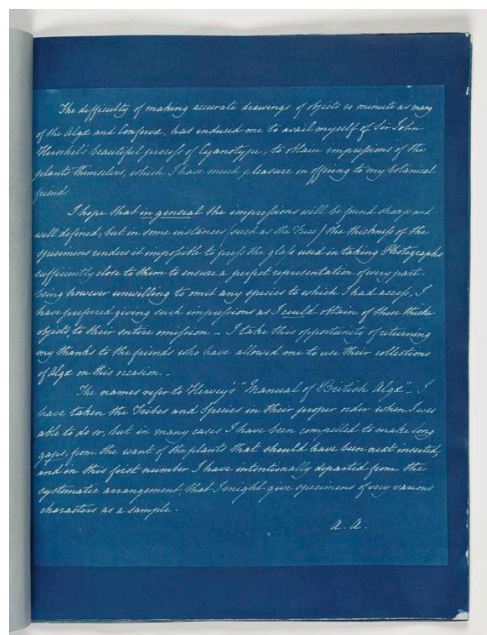 The difficulty of making accurate drawings of objects so minute as many
of the Algæ and Confervæ, has induced me to avail myself of Sir John
Herschel's beautiful process of Cyanotype, to obtain impressions of the
plants themselves, which I have much pleasure in offering to my botanical
friends.
I hope that in general the impressions will be found sharp and
well defined, but in some instances (such as the Fuci) the thickness of the
specimens renders it impossible to press the glass used in taking Photographs
sufficiently close to them to ensure a perfect representation of every part.
Being however unwilling to omit any species to which I had access, I
have preferred giving such impressions as I could obtain of these thicker
objects, to their entire omission - I take this opportunity of returning
my thanks to the friends who have allowed me to use their collections
of Algæ on this occasion. -
The names refer to Harvey's "Manual of British Algæ". I
have taken the Tribes and Species in their proper order when I was
able to do so, but in many cases I have been compelled to make long
gaps, from the want of the plants that should have been next inserted,
and in this first number I have intentionally departed from the
systematic arrangement that I might give specimens of very various
characters as a sample.
A. A.